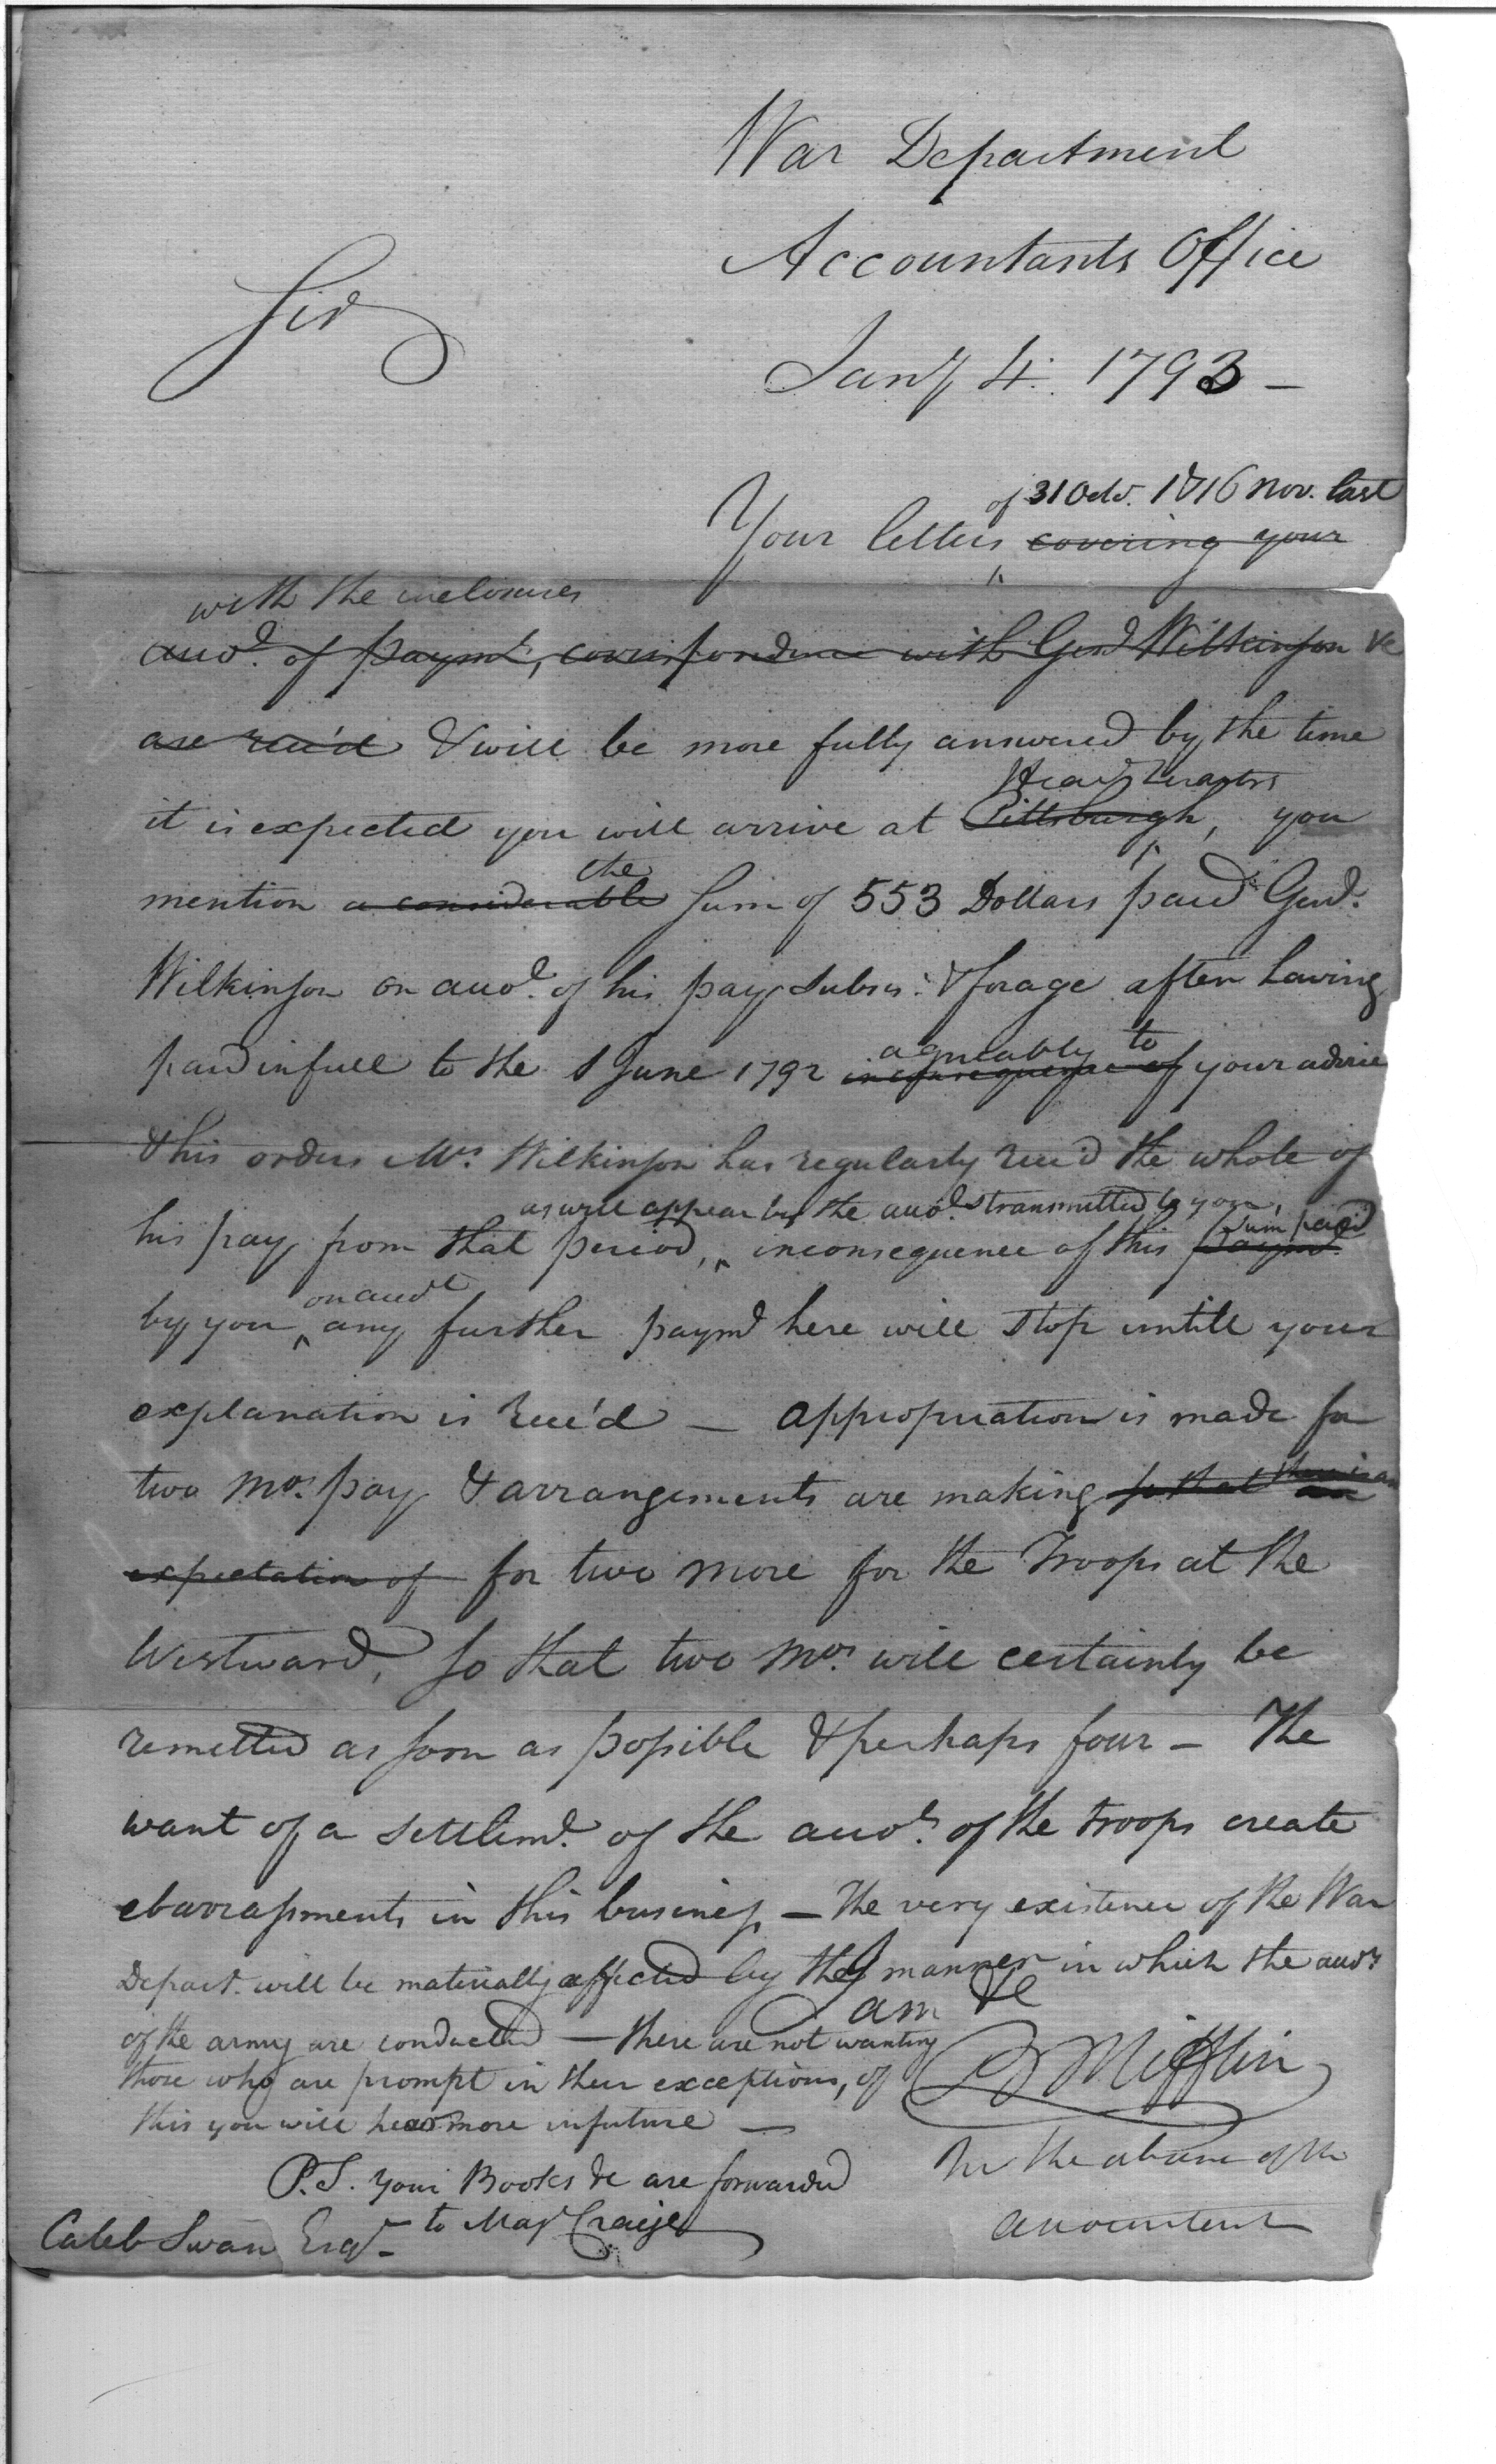 War Department
Accountants Office
Sir
Jany 4. 1793 –
of 31 Octr. 1 & 16 Nov. last
Your letters covering your
with the inclosures
accot. of paymt, correspondence with Genl Wilkinson &c
are rec'd & will be more fully answered by the time
Head Quarters
it is expected you will arrive at Pittsburgh, you
the
mention a considerable Sum of 553 Dollars paid Genl.
Wilkinson on accot. of his pay subsis: & forage after having
agreeably to
paid in full to the 1 June 1792 in consequence of your advice
& his orders Mrs. Wilkinson has regularly rec'd the whole of
as will appear by the accots. transmitted to you,
sum paid
his pay from that period, inconsequence of this paymt
on accot
by you any further paymt here will stop untill your
explanation is rec'd — appropriation is made for
there is an
two mos. pay & arrangements are making so that an
expectation of for two more for the Troops at the
Westward, so that two mos. will certainly be
remitted as soon as possible & perhaps four – The
want of a settlemt. of the accots. of the troops create
ebarrassments in this business – The very existence of the War
Depart. will be materially affected by the manner in which the accots
I am &c
of the army are conducted — there are not wanting
those who are prompt in their exceptions, of
Mifflin
this you will hear more infuture —
In the absence of the
accountant
P.S. your Books &c are forwarded
to Majr Craige
Caleb Swan Esqr –